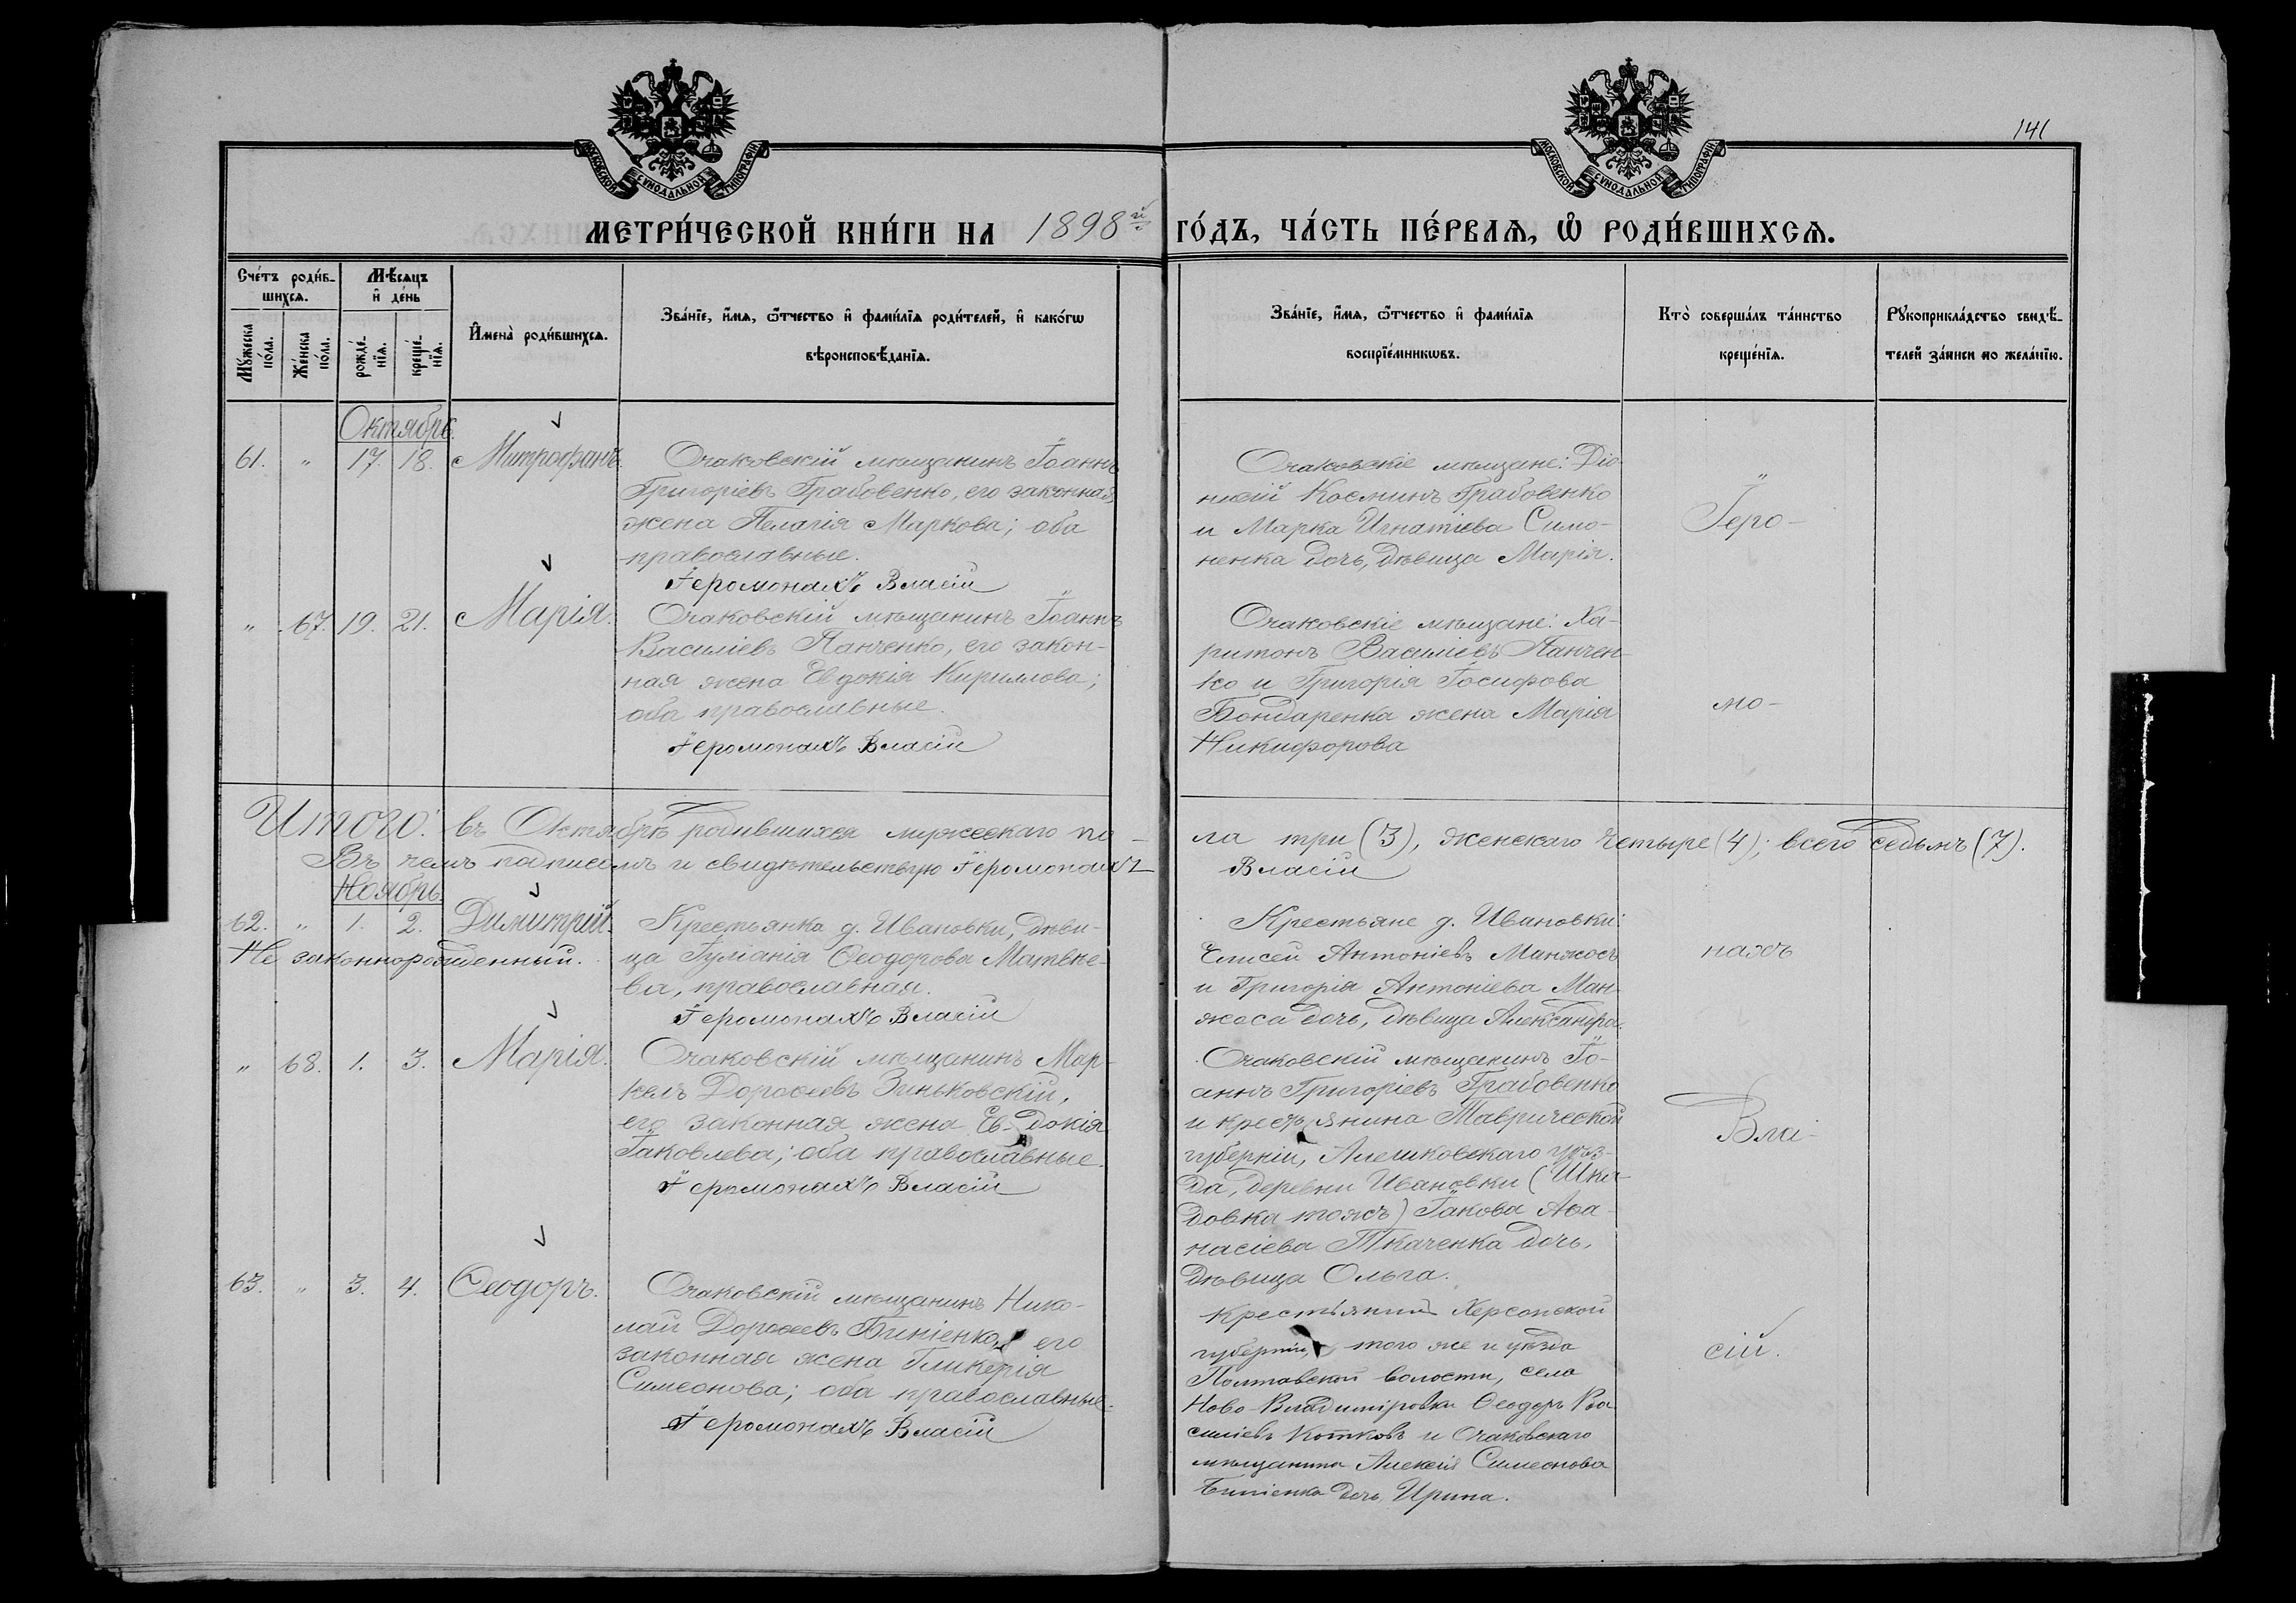 141
МОСКОВСКОЙ СѴНОДАЛЬНОЙ ТИПОГРАФІИ
МОСКОВСКОЙ СѴНОДАЛЬНОЙ ТИПОГРАФІИ
МЕТРИ́ЧЕСКОЙ КНИ́ГИ НА 1898й ГО́ДЪ, ЧА́СТЬ ПЕ́РВАѦ, Ѡ РОДИ́ВШИХСѦ.
Сче́тъ роди́в-
шихсѧ.
Мꙋ́жеска по́ла.
Же́нска по́ла.
Мѣ́сѧцъ
и҆ де́нь
рожде́-
нїѧ.
креще́-
нїѧ.
И҆мена̀ роди́вшихсѧ.
Зва́нїе, и҆́мѧ, ѻ҆́тчество и҆ фами́лїѧ роди́телей, и҆ како́гѡ
вѣроисповѣ́данїѧ.
Зва́нїе, и҆́мѧ, ѻ҆́тчество и҆ фами́лїѧ
воспрїе́мникѡвъ.
Кто̀ соверша́лъ та́инство
креще́нїѧ.
Рꙋкоприкла́дство свидѣ́-
телей за́писи по жела́нїю.
Октябрь.
61. " 17. 18. Митрофанъ.
Очаковскій мѣщанинъ Іоаннъ
Григоріевъ Грабовенко, его законная
жена Пелагія Маркова; оба
православные.
Іеромонахъ Власій
Очаковскіе мѣщане: Діо-
нисій Косминъ Грабовенко
и Марка Игнатіева Симо-
ненка дочь, дѣвица Марія.
Іеро-
" 67. 19. 21. Марія.
Очаковскій мѣщанинъ Іоаннъ
Василіевъ Панченко, его закон-
ная жена Евдокія Кириллова;
оба православные.
Іеромонахъ Власій
Очаковскіе мѣщане: Ха-
ритонъ Василіевъ Панчен-
ко и Григорія Іосифова
Бондаренка жена Марія
Никифорова
мо-
Итого: въ Октябрѣ родившихся мужескаго по-
ла три (3), женскаго четыре (4); всего седьмъ (7).
Въ чемъ подписомъ и свидѣтельствую Іеромонахъ
Власій
Ноябрь.
62. " 1. 2. Димитрій.
Не законнорожденный.
Крестьянка д. Ивановки, дѣви-
ца Іуліанія Ѳеодорова Матвѣе-
ва, православная.
Іеромонахъ Власій
Крестьяне д. Ивановки:
Елисей Антоніевъ Манжосъ
и Григорія Антоніева Ман-
жоса дочь, дѣвица Александра.
нахъ
" 68. 1. 3. Марія.
Очаковскій мѣщанинъ Мар-
келъ Дороѳеевъ Зиньковскій,
его законная жена Ев-докія
Іаковлева; оба православные.
Іеромонахъ Власій
Очаковскій мѣщанинъ Іо-
аннъ Григоріевъ Грабовенко
и крестьянина Таврической
губерніи, Алешковскаго уѣз-
да, деревни Ивановки (Шка-
довка тожъ) Іакова Аѳа-
насіева Ткаченка дочь,
дѣвица Ольга.
Вла-
63. " 3. 4. Ѳеодоръ.
Очаковскій мѣщанинъ Нико-
лай Дороѳеевъ Биніенко, его
законная жена Гликерія
Симеонова; оба православные.
Іеромонахъ Власій
Крестьянинъ Херсонской
губерніи, того же и уѣзда
Полтавской волости, села
Ново-Владиміровки Ѳеодоръ Ва-
силіевъ Котковъ и Очаковскаго
мѣщанина Алексія Симеонова
Биніенка дочь Ирина.
сій.